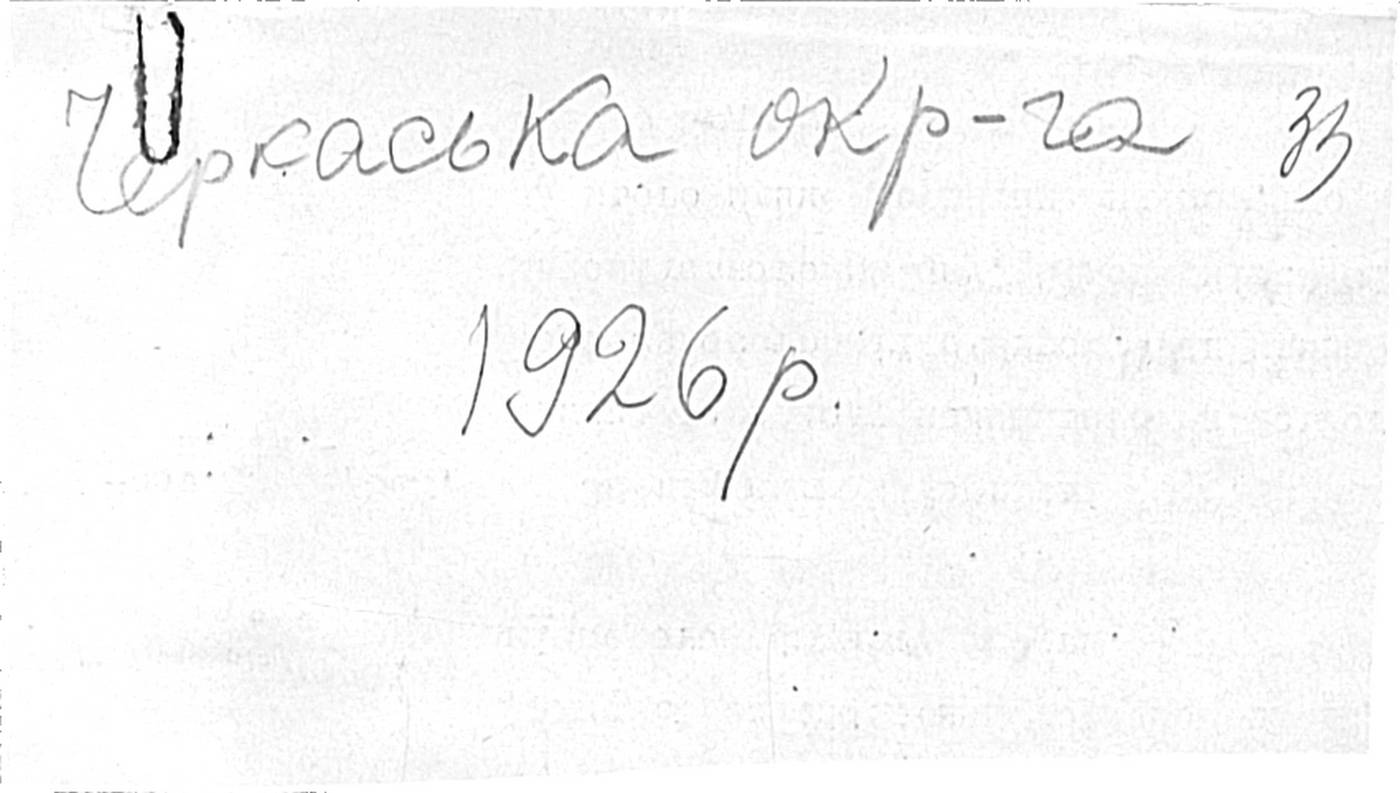 Черкаська окр-га 33
1926 р.